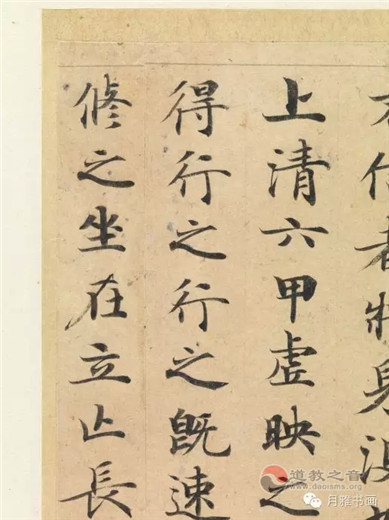 者将身
上清六甲虚映之
得行之行之既速
修之坐在立亡長
道教之音
www.daoisms.org
月雅书画